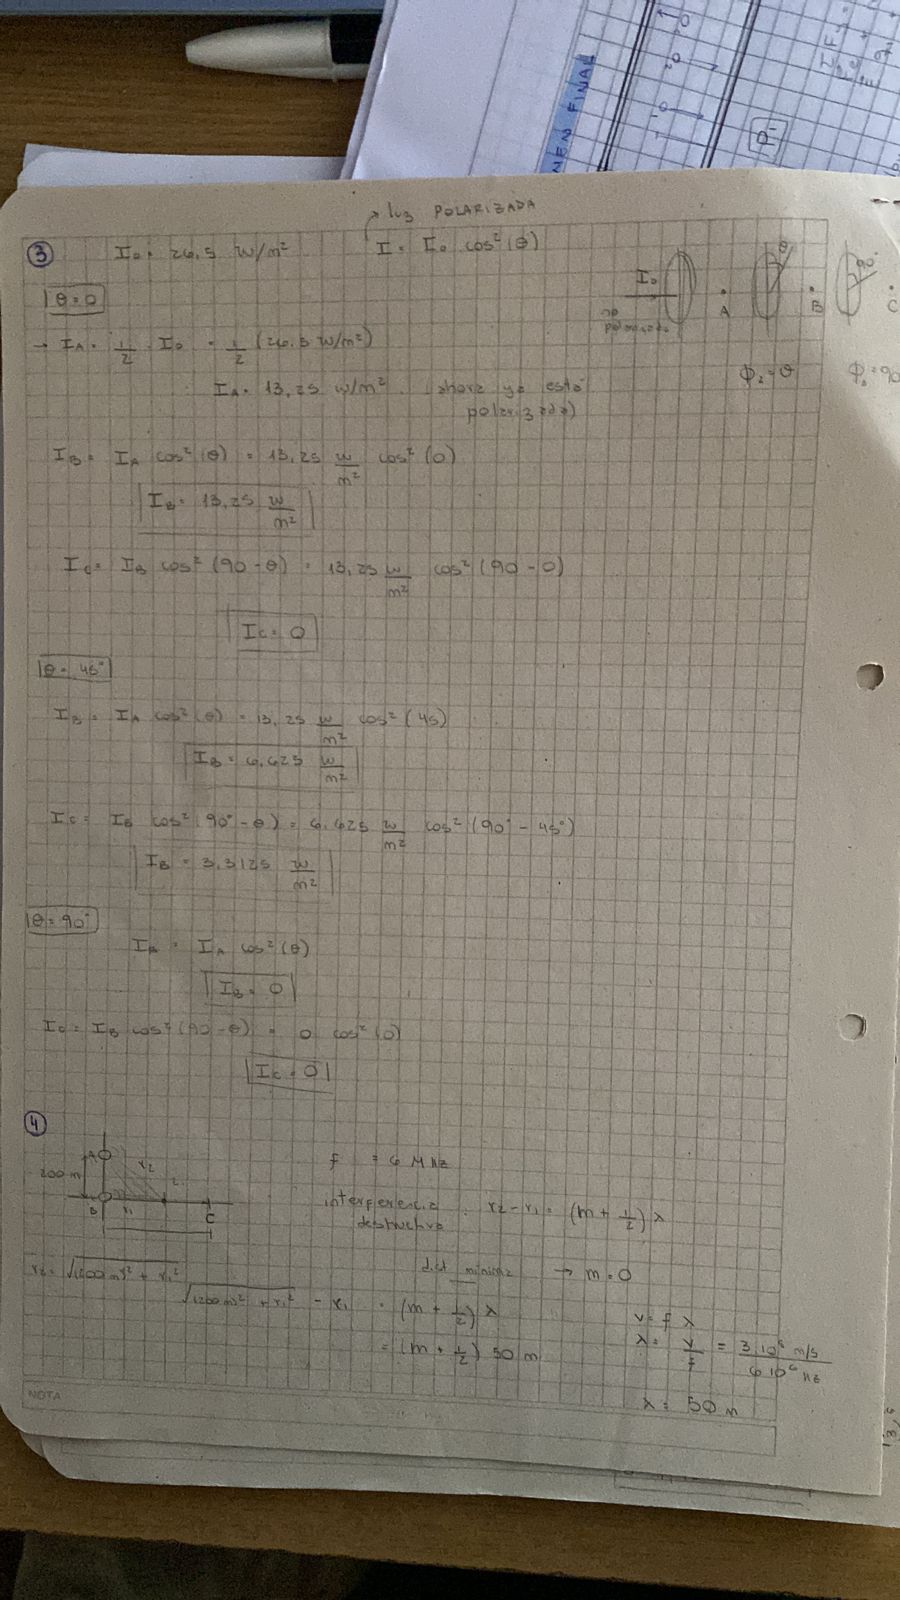 MEN FINAL
P1
→ luz POLARIZADA
③ I₀ = 26,5 W/m² I = I₀ cos²(θ)
I₀
no polarizada
A
θ
B
90°
C
θ = 0
→ I_A = 1/2 I₀ = 1/2 (26,5 W/m²)
I_A = 13,25 W/m² (ahora ya está polarizada)
ϕ₂ = θ
I_B = I_A cos²(θ) = 13,25 W/m² cos²(0)
I_B = 13,25 W/m²
I_C = I_B cos²(90 - θ) = 13,25 W/m² cos²(90 - 0)
I_C = 0
θ = 45°
I_B = I_A cos²(θ) = 13,25 W/m² cos²(45)
I_B = 6,625 W/m²
I_C = I_B cos²(90° - θ) = 6,625 W/m² cos²(90° - 45°)
I_B = 3,3125 W/m²
θ = 90°
I_B = I_A cos²(θ)
I_B = 0
I_C = I_B cos²(90 - θ) = 0 cos²(0)
I_C = 0
④
A
200 m
r₂
B
r₁
C
f = 6 MHz
interferencia destructiva : r₂ - r₁ = (m + 1/2) λ
dist minima → m = 0
r₂ = √((200 m)² + r₁²)
√((200 m)² + r₁²) - r₁ = (m + 1/2) λ
= (m + 1/2) 50 m
v = f λ
λ = v/f = 3.10⁸ m/s / 6 10⁶ Hz
λ = 50 m
NOTA